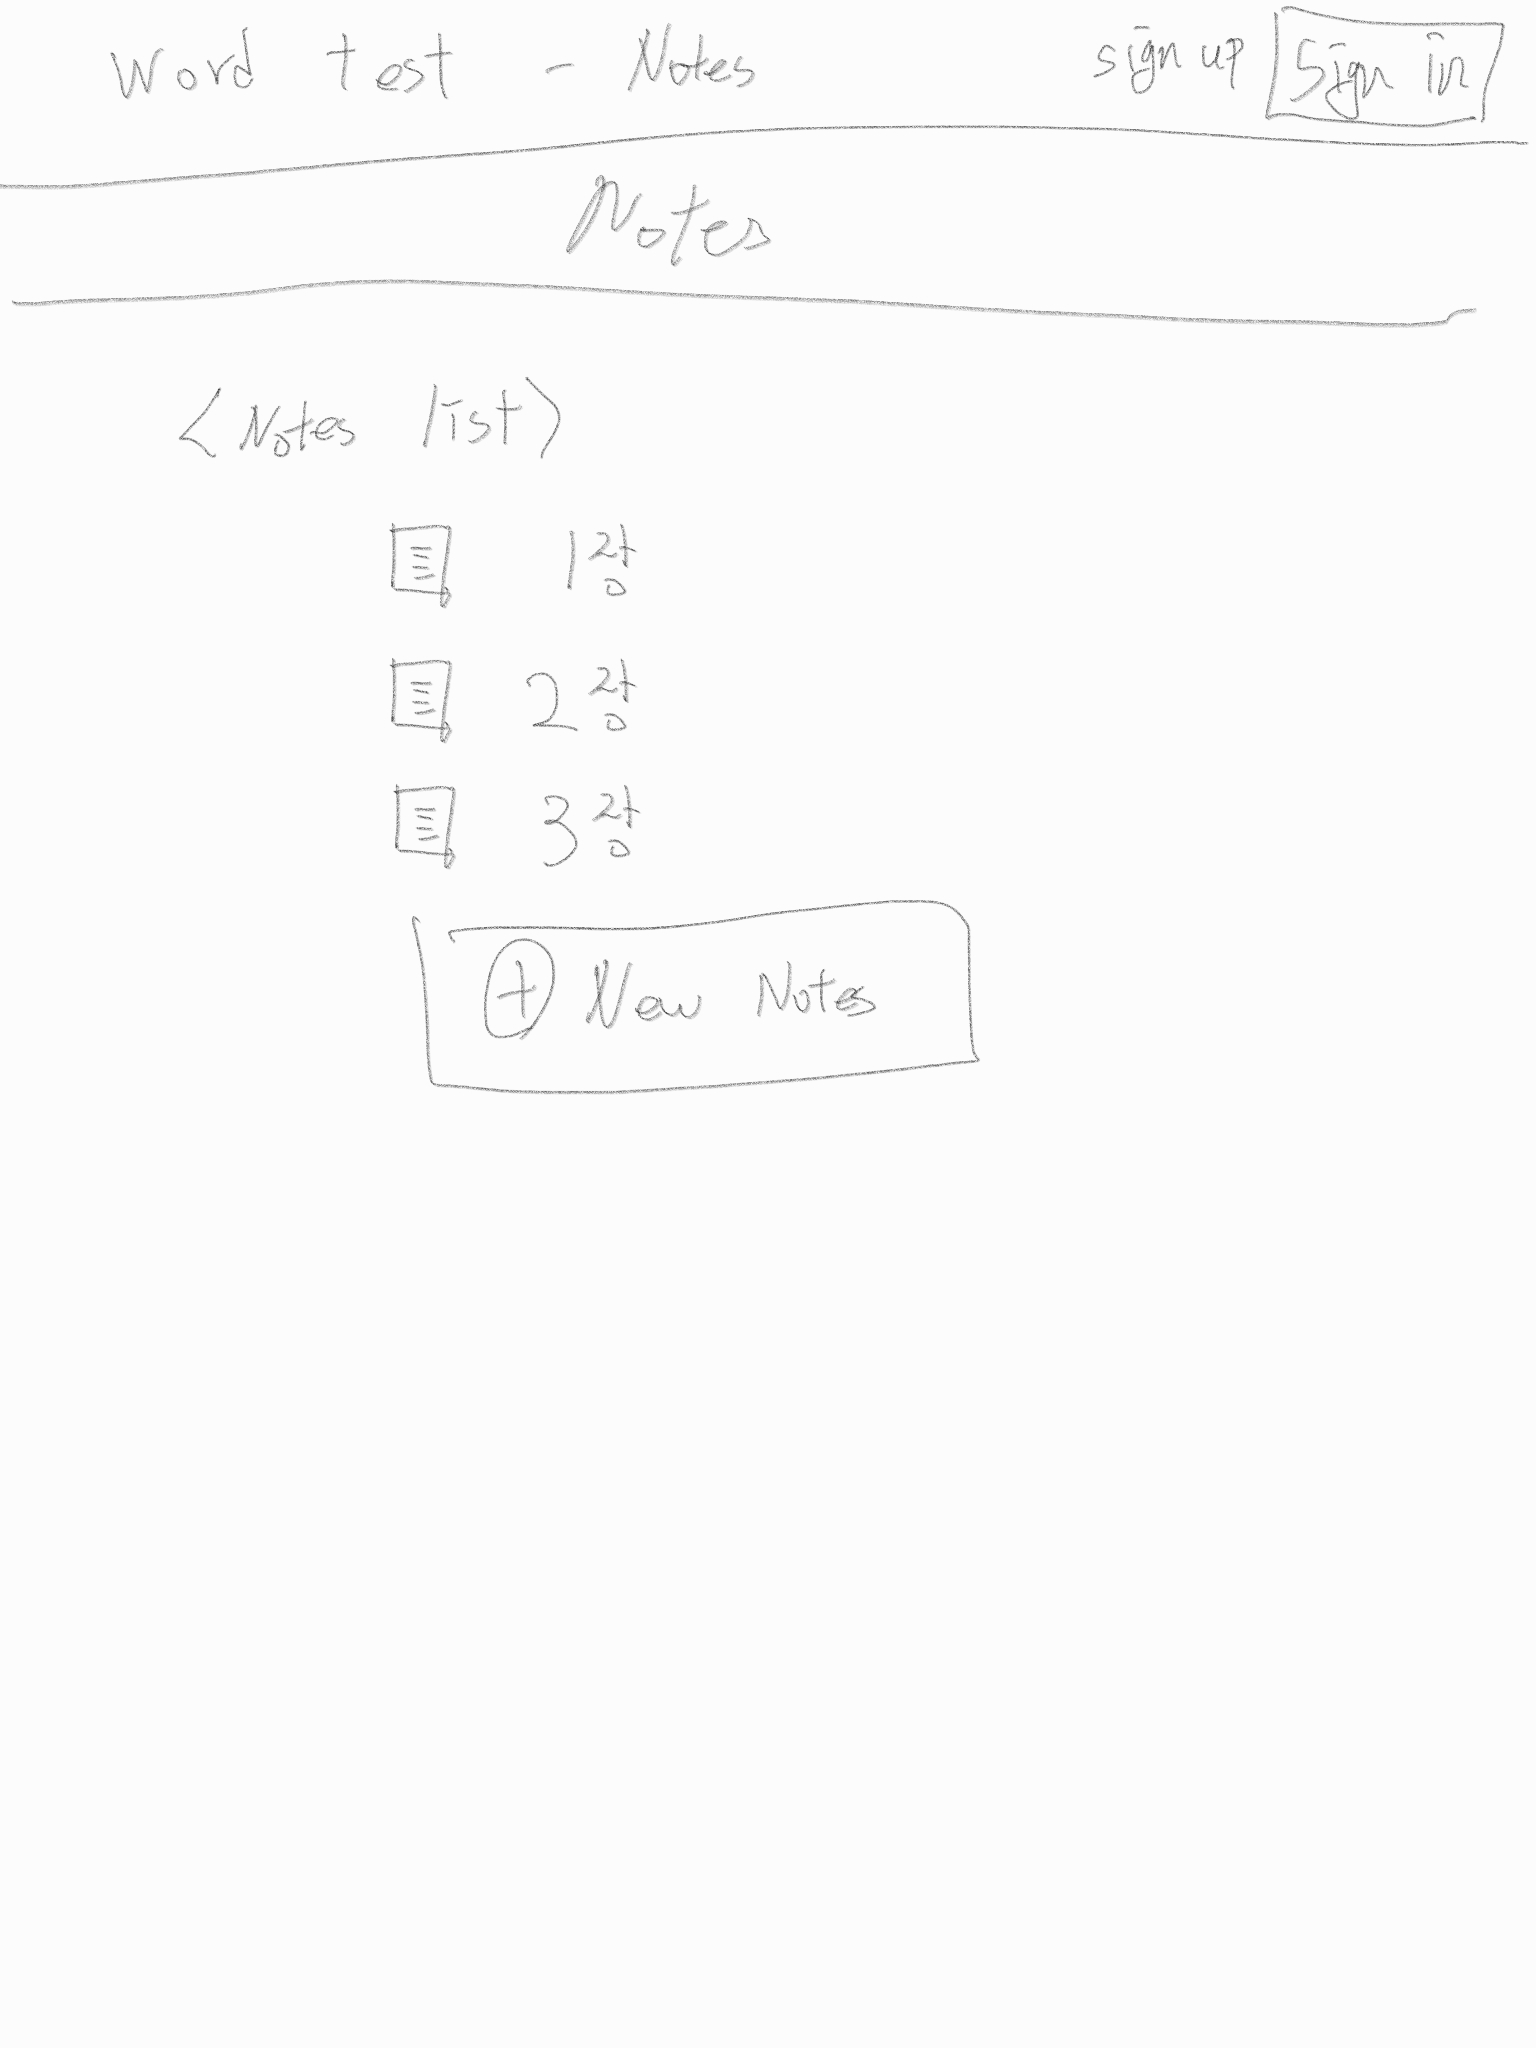 Word test - Notes sign up Sign in
Notes
<Notes list>
1강
2강
3강
+ New Notes